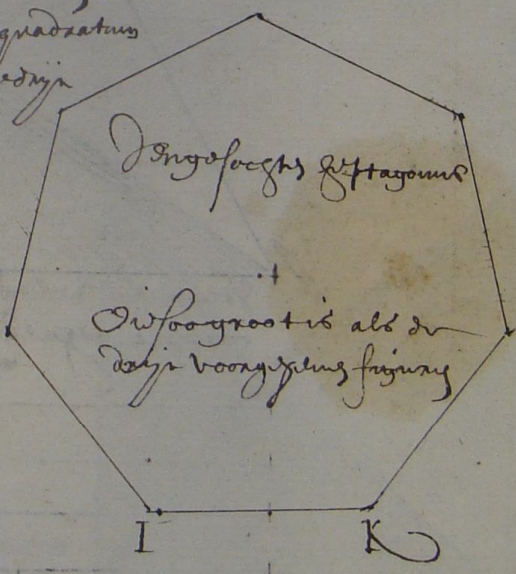 quadratum
drijn
Den gesochten Heptagonus
Die soo groot is als de
drijn voorgegeven figuren
I K